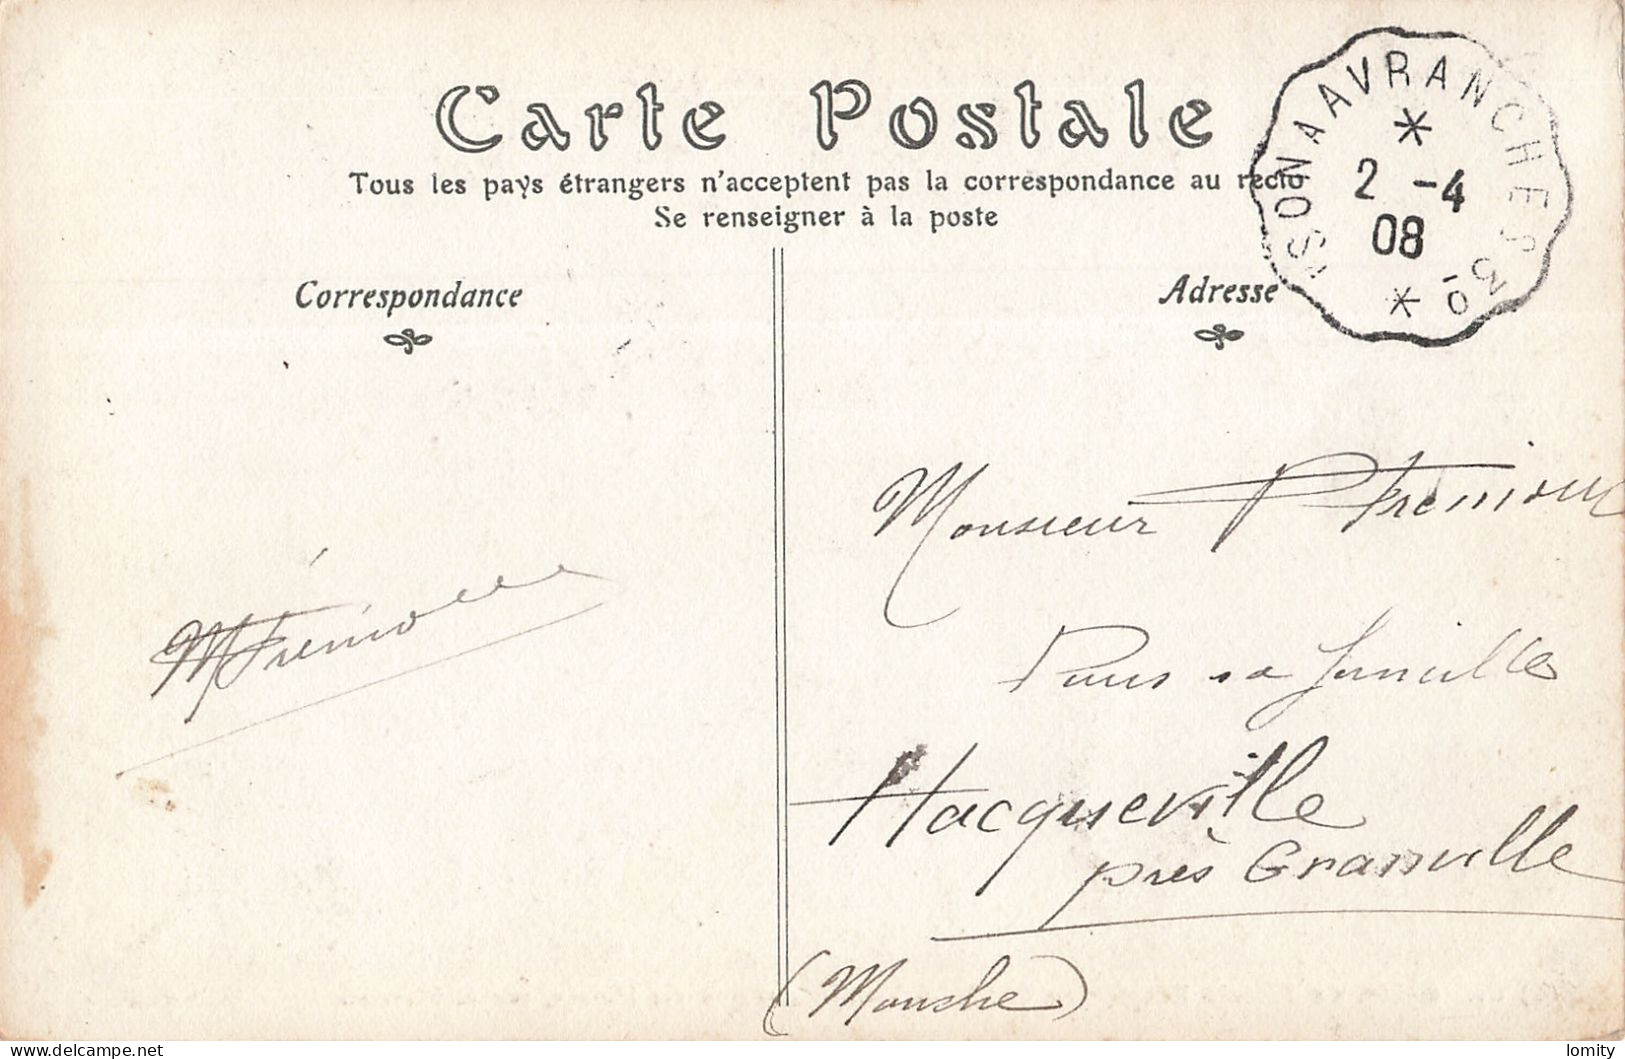 Carte Postale
Tous les pays étrangers n'acceptent pas la correspondance au recto
Se renseigner à la poste
Correspondance
Adresse
ISON A AVRANCHES 3º
2 -4
08
Monsieur P
sa famille
Hacqueville
près Granville
(Manche)
delcampe.net
lomity